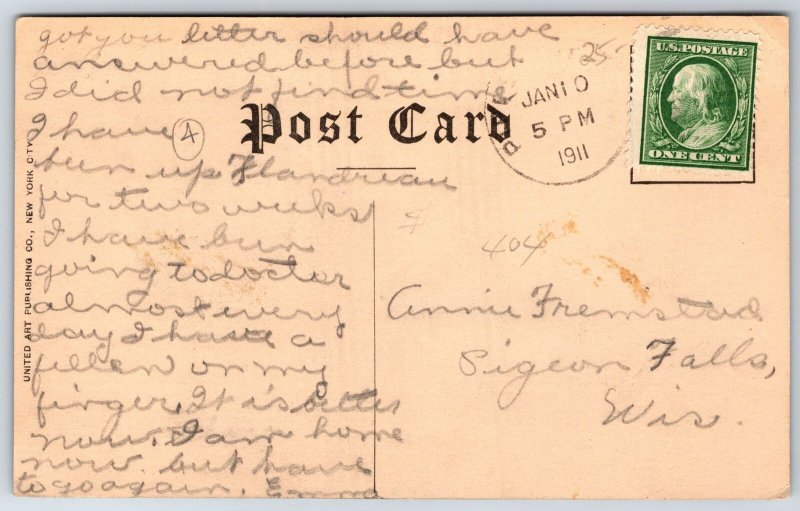 got you letter should have
answered before but
I did not find time
I have
been up Flandreau
for two weeks
I have been
going to doctor
almost every
day I have a
fellen on my
finger. It is better
now. I am home
now. but have
to go again. Emma
4
Post Card
25-
JAN 10
5 PM
1911
U.S. POSTAGE
ONE CENT
404
Annie Fremstad
Pigeon Falls,
Wis.
UNITED ART PUBLISHING CO., NEW YORK CITY